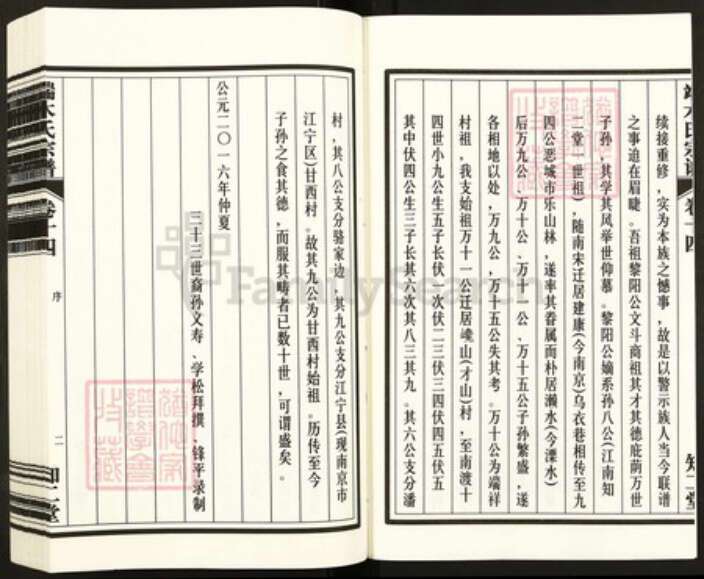 续接重修，实为本族之憾事，故是以警示族人当今联谱
之事迫在眉睫。吾祖黎阳公文斗商祖其才其德庇荫万世
子孙，其学其风举世仰慕。黎阳公嫡系孙八公（江南知
二堂一世祖），随南宋迁居建康（今南京）乌衣巷相传至九
四公恶城市乐山林，遂率其眷属而朴居濑水（今溧水）
后万九公、万十公、万十一公、万十五公子孙繁盛，遂
各相地以处，万九公，万十五公失其考。万十公为端祥
村祖，我支始祖万十一公迁居嵕山（才山）村，至南渡十
四世小九公生五子长伏一次伏二三伏三四伏四五伏五
其中伏四公生三子长其六次其八三其九。其六公支分潘
村，其八公支分骆家边，其九公支分江宁县（现南京市
江宁区）甘西村。故其九公为甘西村始祖。历传至今
子孙之食其德，而服其畴者已数十世，可谓盛矣。
公元二〇一六年仲夏
三十三世裔孙文寿、学松拜撰、锋平录制
端木氏宗谱
卷十四
序
二
知二堂
端木氏宗谱
卷十四
知二堂
FamilySearch